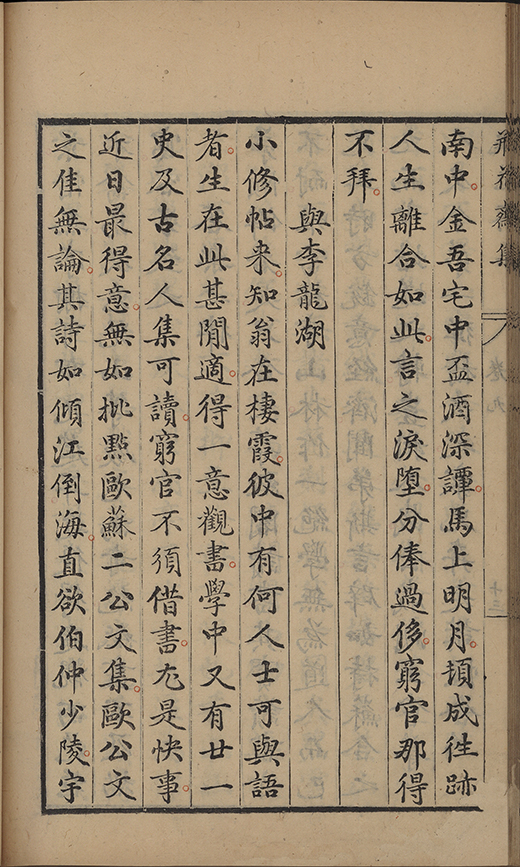 瓶花齋集 卷九 十三
南中金吾宅中盃酒深譚馬上明月頓成徃跡
人生離合如此言之淚墮分俸過侈窮官那得
不拜
與李龍湖
小修帖来知翁在棲霞彼中有何人士可與語
者生在此甚閒適得一意觀書學中又有廿一
史及古名人集可讀窮官不須借書尤是快事
近日最得意無如批點歐蘇二公文集歐公文
之佳無論其詩如傾江倒海直欲伯仲少陵宇